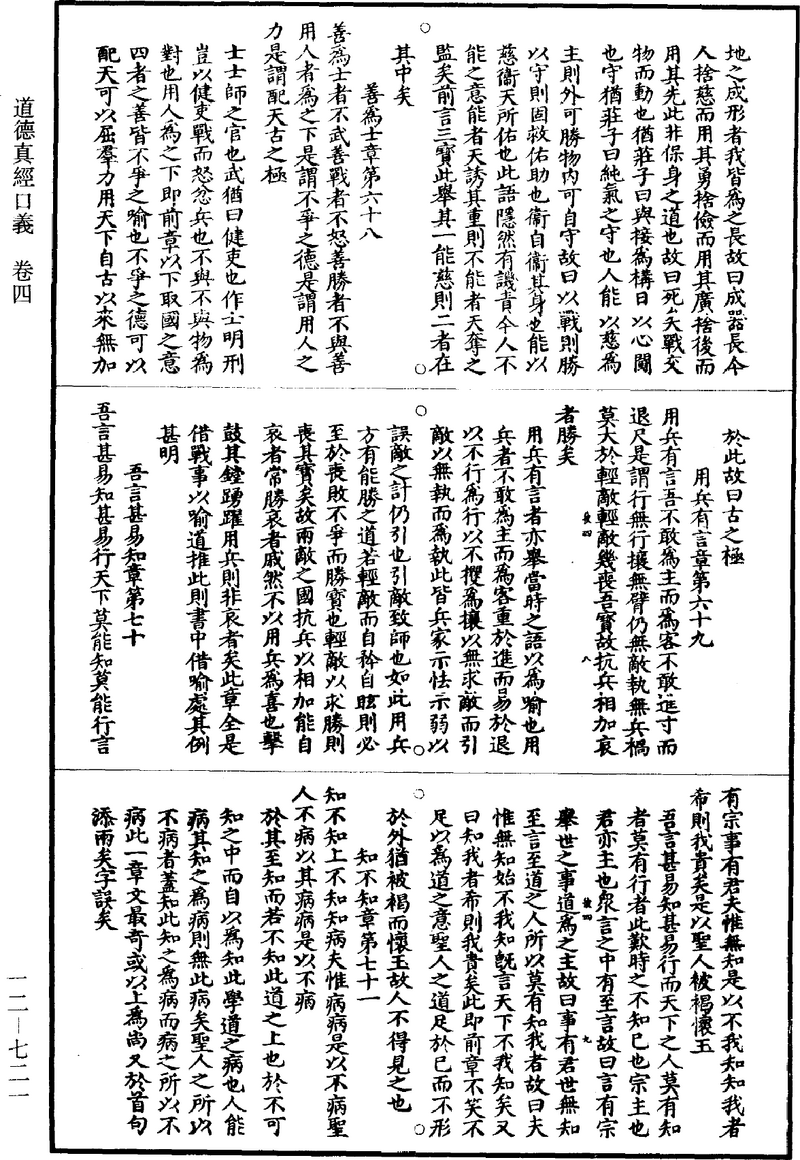 道德真經口義　卷四
地之成形者我皆為之長故曰成器長今
人捨慈而用其勇捨儉而用其廣捨後而
用其先此非保身之道也故曰死矣戰交
物而動也猶莊子曰與接為構日以心鬭
也守猶莊子曰純氣之守也人能以慈為
主則外可勝物內可自守故曰以戰則勝
以守則固救佑助也衞自衞其身也能以
慈衞天所佑也此語隱然有譏責今人不
能之意能者天誘其衷則不能者天奪之
監矣前言三寶此舉其一能慈則二者在
其中矣
善為士章第六十八
善為士者不武善戰者不怒善勝者不與善
用人者為之下是謂不爭之德是謂用人之
力是謂配天古之極
士士師之官也武猶曰健吏也作士明刑
豈以健吏戰而怒忿兵也不與不與物為
對也用人為之下即前章以下取國之意
四者之善皆不爭之喻也不爭之德可以
配天可以屈羣力用天下自古以來無加
於此故曰古之極
用兵有言章第六十九
用兵有言吾不敢為主而為客不敢進寸而
退尺是謂行無行攘無臂仍無敵執無兵禍
莫大於輕敵輕敵幾喪吾寶故抗兵相加哀
者勝矣
用兵有言者亦舉當時之語以為喻也用
兵者不敢為主而為客重於進而易於退
以不行為行以不攖為攘以無求敵而引
敵以無執而為執此皆兵家示怯示弱以
誤敵之計仍引也引敵致師也如此用兵
方有能勝之道若輕敵而自矜自眩則必
至於喪敗不爭而勝寶也輕敵以求勝則
喪其寶矣故兩敵之國抗兵以相加能自
哀者常勝哀者慼然不以用兵為喜也擊
鼓其鏜踴躍用兵則非哀者矣此章全是
借戰事以喻道推此則書中借喻處其例
甚明
吾言甚易知章第七十
吾言甚易知甚易行天下莫能知莫能行言
有宗事有君夫惟無知是以不我知知我者
希則我貴矣是以聖人被褐懷玉
吾言甚易知甚易行而天下之人莫有知
者莫有行者此歎時之不知己也宗主也
君亦主也眾言之中有至言故曰言有宗
舉世之事道為之主故曰事有君世無知
至言至道之人所以莫有知我者故曰夫
惟無知始不我知既言天下不我知矣又
曰知我者希則我貴矣此即前章不笑不
足以為道之意聖人之道足於己而不形
於外猶被褐而懷玉故人不得見之也
知不知章第七十一
知不知上不知知病夫惟病病是以不病聖
人不病以其病病是以不病
於其至知而若不知此道之上也於不可
知之中而自以為知此學道之病也人能
病其知之為病則無此病矣聖人之所以
不病者蓋知此知之為病而病之所以不
病此一章文最奇或以上為尚又於首句
添兩矣字誤矣
一二—七二一